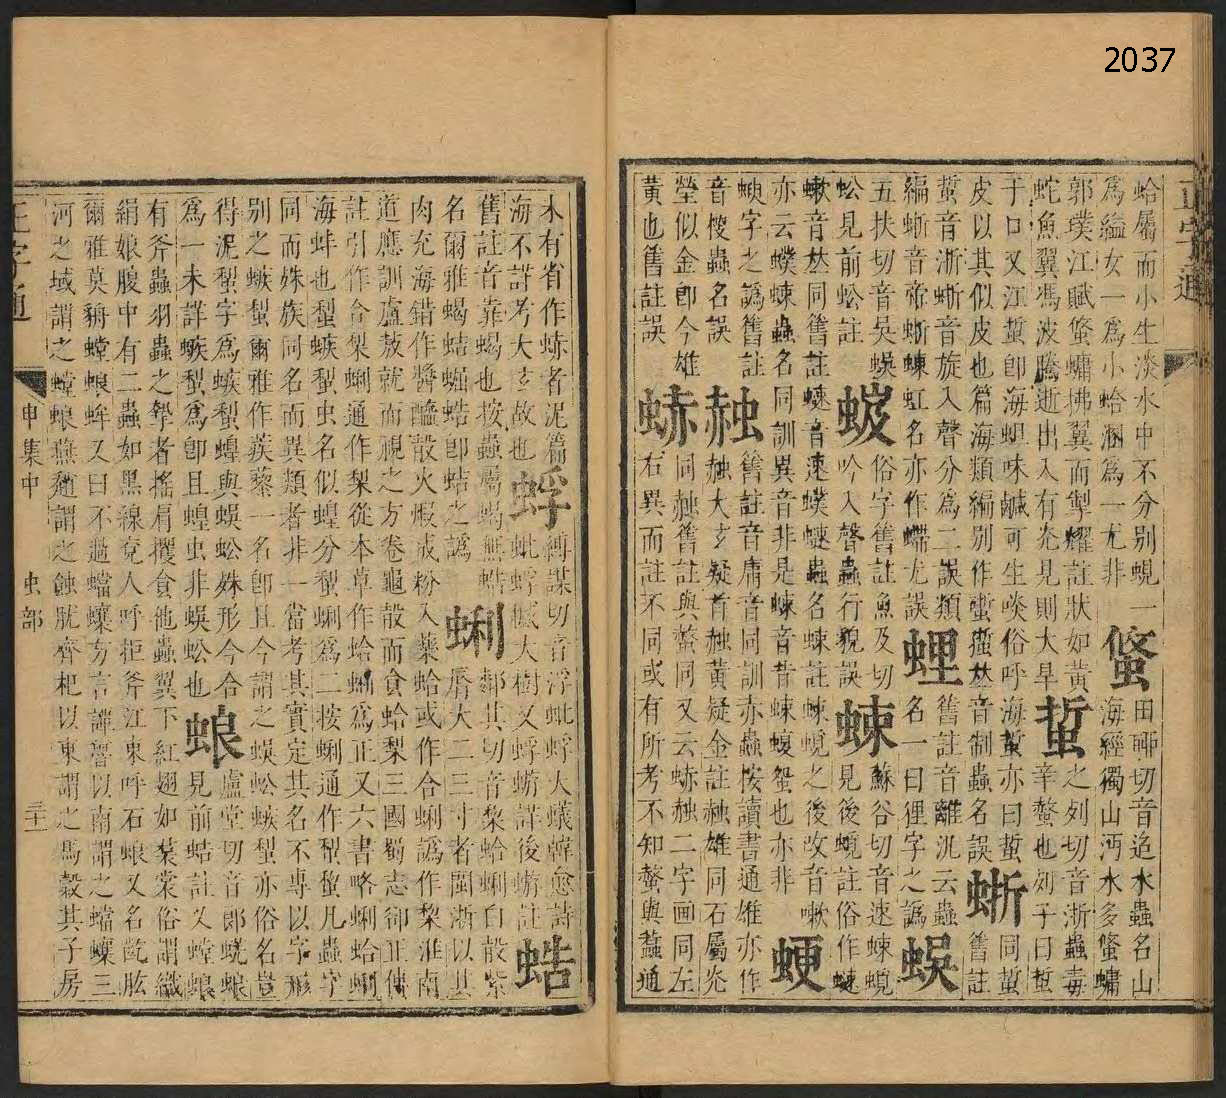 2037
正字通
蛤屬而小生淡水中不分別蜆一
爲縊女一爲小蛤溷爲一尤非
䖺
田聊切音迢水蟲名山
海經獨山沔水多䖺䗤
郭璞江賦䖺䗤拂翼而掣耀註狀如黃
蛇魚翼馮波騰逝出入有光見則大旱
蜇
之列切音浙蟲毒
辛螫也列子曰蜇
于口又江蜇卽海蜇味鹹可生啖俗呼海蜇亦曰蜇
皮以其似皮也篇海類編別作
音制蟲名誤
蜥
同蜇
舊註
蜇音淅蜥音旋入聲分爲二誤類
編蜥音帝蜥蝀虹名亦作螮尤誤
蜸
舊註音離汎云蟲
名一曰狸字之譌
蜈
五扶切音吳蜈
蚣見前蚣註
俗字舊註魚及切
吟入聲蟲行貌誤
蝀
蘇谷切音速蝀蜆
見後蜆註俗作
音𠀤同舊註
音速蟲名蝀註蝀蜆之後改音嗽
亦云蟔蝀蟲名同訓異音非是蝀音昔蝀蝮蛩也亦非
蛽
蝡字之譌舊註
音稷蟲名誤
舊註音庸音同訓亦蟲按讀書通雄亦作
大玄疑首赨黃疑金註赨雄同石屬光
瑩似金卽今雄
黃也舊註誤
同赨舊註與螫同又云蛼赨二字画同左
右異而註不同或有所考不知螫與蠚通
木有省作蛼者泥篇
海不詳考大玄故也
蜉
縛謀切音浮蚍蜉大蟻韓愈詩
蚍蜉撼大樹又蜉蝣詳後蝣註
蛣
舊註音靠蝎也按蟲屬蝎無蛣
名爾雅蝎蛣𧌑蛣卽蛣之譌
蜊
鄰其切音棃蛤蜊白殼紫
脣大二三寸者閩浙以其
肉充海錯作醬醢殼火煆成粉入藥蛤或作合蜊譌作棃淮南
道應訓盧敖就而視之方卷龜殼而食蛤梨三國蜀志郤正傳
註引作合棃蜊通作梨從本草作蛤蜊爲正又六書略蜊蛤蜊
海蚌也蟍螏蟍虫名似蝗分蟍蜊爲二按蜊通作蟍蟍凡蟲字
同而姝族同名而異類者非一當考其實定其名不專以字形
別之螏蟍爾雅作蒺藜一名卽且今謂之蜈蚣螏蟍亦俗名豈
得泥蟍字爲螏蟍蝗與蜈蚣姝形今合
爲一未詳螏蟍爲卽且蝗虫非蜈蚣也
蜋
盧堂切音郎蜣蜋
見前蛣註又螳蜋
有斧蟲羽蟲之摯者搖肩攫食他蟲翼下紅翅如裠裳俗謂織
絹娘腹中有二蟲如黑線兗人呼拒斧江東呼石蜋又名齕肬
爾雅莫貈螳蜋蛑又曰不過蟷蠰方言譚魯以南謂之蟷蠰三
河之域謂之螳蜋燕趙謂之蝕肬齊杞以東謂之馬穀其子房
正字通
申集中
虫部
三十一